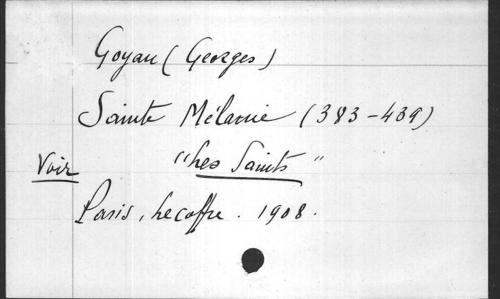 Goyau (Georges)
Sainte Mélanie (383-439)
Voir "Les Saints"
Paris, Lecoffre. 1908.